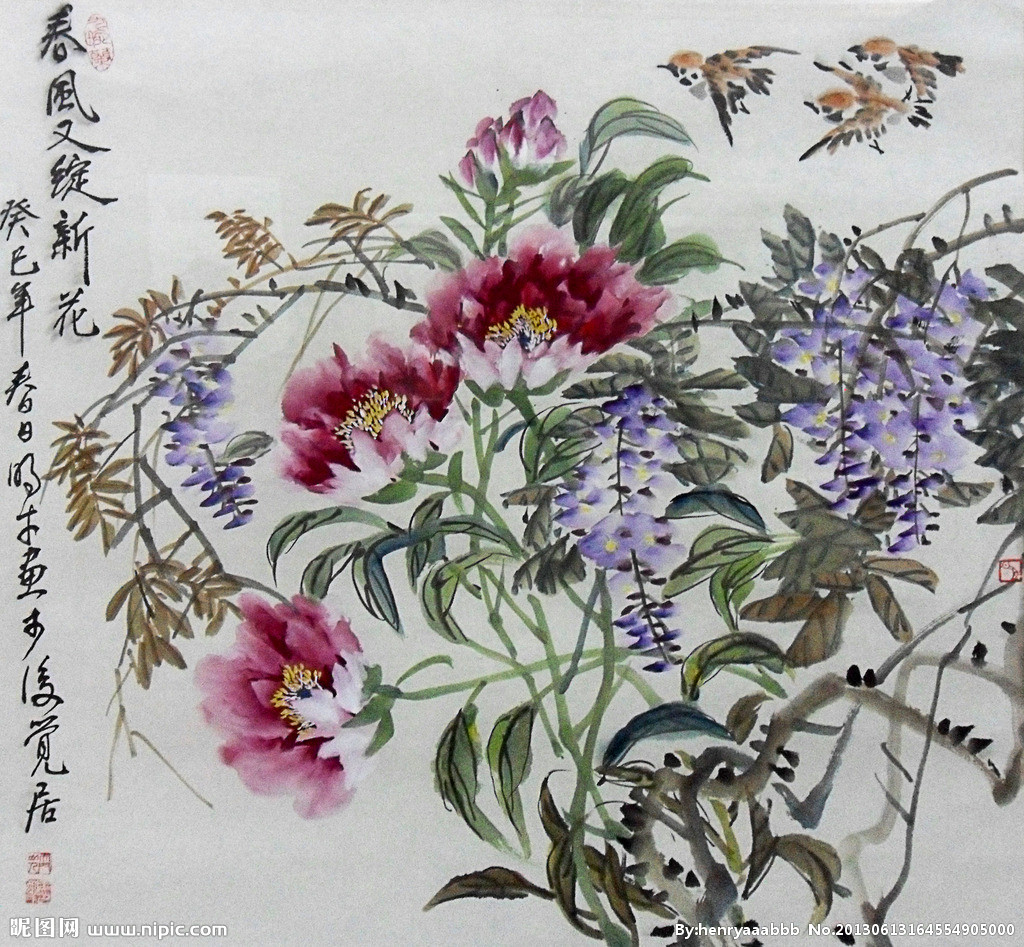 春风又綻新花
癸巳年春日明才画于後觉居
昵图网 www.nipic.com
By:henryaaabbb No.20130613164554905000